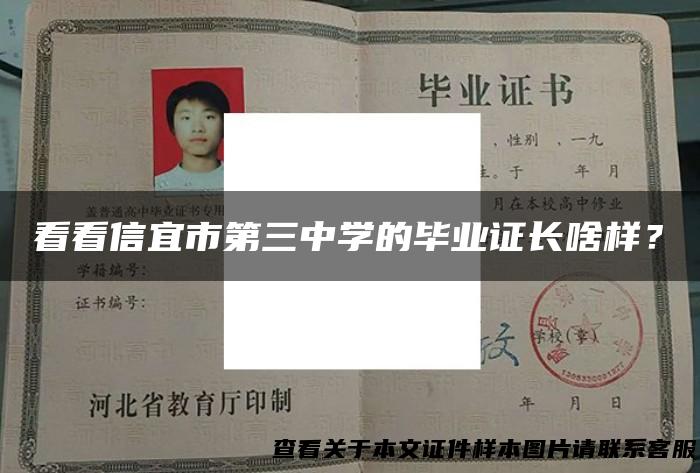 毕业证书
，性别 ，一九
生。于 年 月
月在本校高中修业
盖普通高中毕业证书专用
看看信宜市第三中学的毕业证长啥样？
学籍编号：
证书编号：
学校(章)
河北省教育厅印制
年 月 日
查看关于本文证件样本图片请联系客服